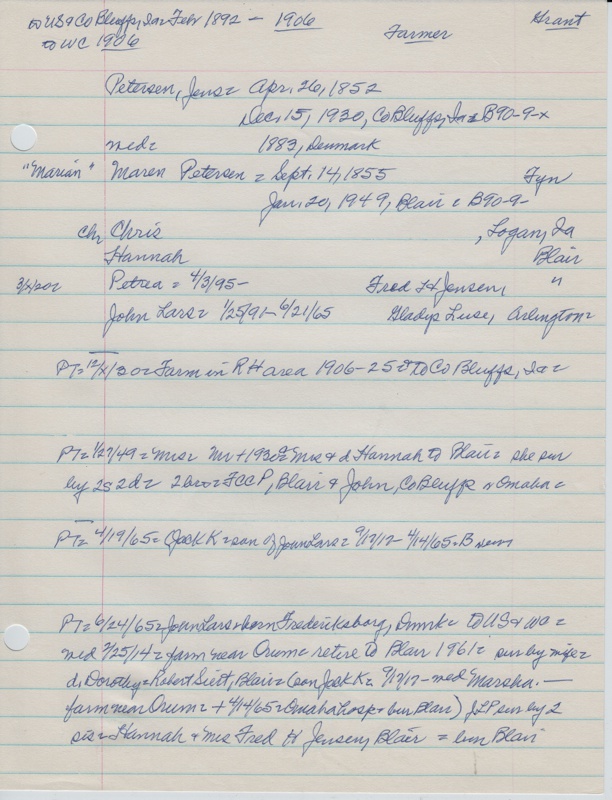 to US & Co Bluffs, Ia = Febr 1892 - 1906 Grant
to WC 1906 Farmer
Petersen, Jens = Apr. 26, 1852
Dec. 15, 1930, Co Bluffs, Ia = B90-9-x
med = 1883, Denmark
"Marian" Maren Petersen = Sept. 14, 1855 Fyn
Jan. 20, 1949, Blair = B90-9-
Ch: Chris , Logan, Ia
Hannah Blair
Petrea = 4/3/95- Fred H Jensen, "
John Lars = 1/25/91 - 6/21/65 Gladys Luse, Arlington =
PT = 12/x/30 = Farm in RH area 1906-25 & to Co Bluffs, Ia =
PT = 1/27/49 = Mrs = Mr + 1930 = Mrs & d Hannah to Blair = she sur
by 2s 2d = 2 bro = FCCP, Blair & John, Co Bluffs n Omaha =
PT = 4/19/65 = Jack K = son of John Lars = 9/17/17 - 4/14/65 = B
PT = 6/24/65 = John Lars = born Fredericksborg, Dnmrk = to US & WC =
med 2/25/14 = farm near Orum = retire to Blair 1961 = sur by wife =
d, Dorothy = Robert Siert, Blair = (son Jack K = 9/17/17 - med Marsha. -
farm near Orum = + 4/14/65 = Omaha hosp + bur Blair) JLP sur by 2
sis = Hannah & Mrs Fred H Jensen, Blair = bur Blair